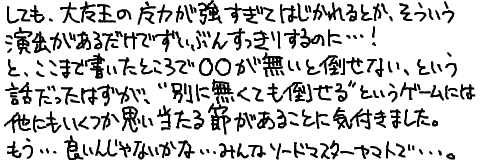 しても、大友王の反力が強すぎてはじかれるとか、そういう
演出があるだけでずいぶんすっきりするのに…！
と、ここまで書いたところで〇〇が無いと倒せない、という
話だったはずが、“別に無くても倒せる”というゲームには
他にもいくつか思い当たる節があることに気付きました。
もう…良いんじゃないかな…みんなソードマスターヤマトで…。